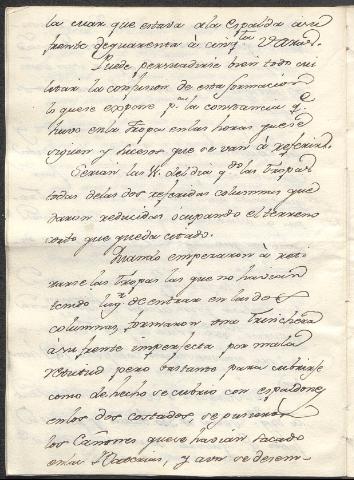 la cual que estava ala espalda a su
frente de quarenta à cinq.ta Varas.
Puede persuadirse bien todo mi
litar la confusion de esta formacion
lo que se expone p.a la constancia q.e
huvo en la tropa en las horas que se
siguen y sucesos que se van à referir.
Serian las 11. del dia q.do las tropas
todas de las dos referidas columnas que
daron reducidas ocupando el terreno
corto que queda citado.
Quando empezaron à reti
rarse las tropas las que no havian
tenido lug.r de entrar en las dos
columnas, formaron una trinchera
à su frente imperfecta por mala
pero bastante para cubrirse
como de hecho se cubrio con espaldones
en los dos costados, se pusieron
los Cañones que se havian sacado
en las y aun se desem-